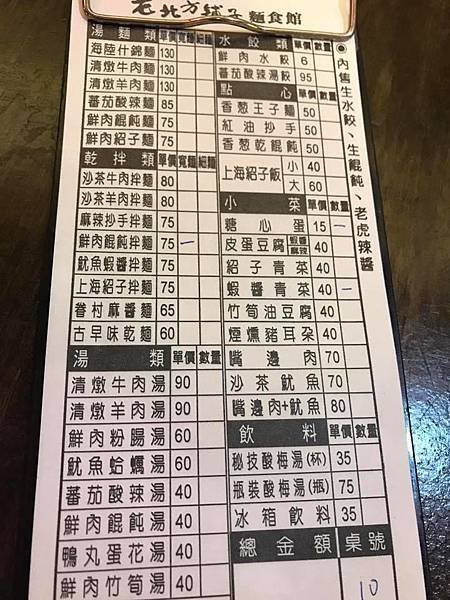 老北方舖子麵食館
湯麵類 單價 寬麵 細麵
海陸什錦麵 130
清燉牛肉麵 130
清燉羊肉麵 130
蕃茄酸辣麵 85
鮮肉餛飩麵 75
鮮肉紹子麵 80
乾拌類 單價 寬麵 細麵
沙茶牛肉拌麵 80
沙茶羊肉拌麵 80
麻辣抄手拌麵 75
鮮肉餛飩拌麵 75 一
魷魚蝦醬拌麵 75
上海紹子拌麵 75
眷村麻醬麵 65
古早味乾麵 60
湯類 單價 數量
清燉牛肉湯 90
清燉羊肉湯 90
鮮肉粉腸湯 60
魷魚蛤蠣湯 60
蕃茄酸辣湯 40
鮮肉餛飩湯 40
鴨丸蛋花湯 40
鮮肉竹筍湯 40
水餃類 單價 數量
鮮肉水餃 6
蕃茄酸辣湯餃 95
點心 單價 數量
香葱王子麵 50
紅油抄手 50
香葱乾餛飩 50
上海紹子飯 小 40
大 60
小菜 單價 數量
糖心蛋 15 一
皮蛋豆腐 蝦醬 麻辣 40
紹子青菜 40
蝦醬青菜 40 一
竹筍油豆腐 40
煙燻豬耳朵 40
嘴邊肉 70
沙茶魷魚 70
嘴邊肉+魷魚 80
飲料 單價 數量
秘技酸梅湯(杯) 35
瓶裝酸梅湯(瓶) 75
冰箱飲料 35
總金額 桌號
10
◉內售生水餃、生餛飩、老虎辣醬